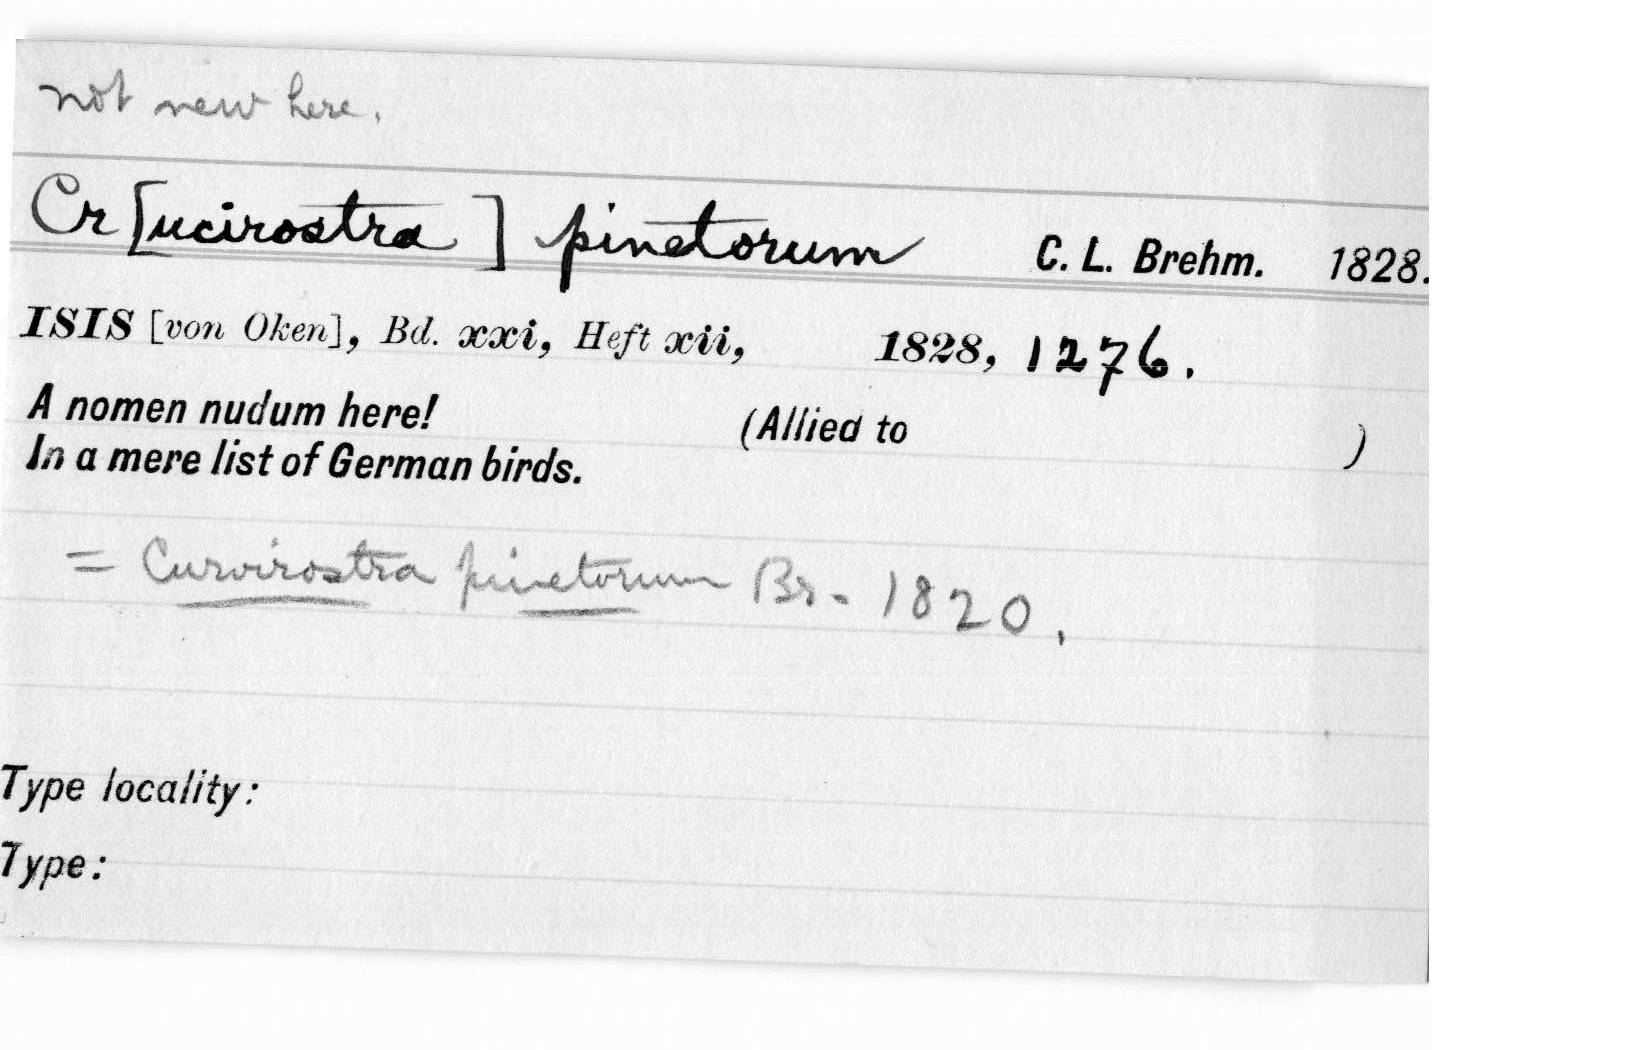 not new here.
Cr[ucirostra] pinetorum C. L. Brehm. 1828.
ISIS [von Oken], Bd. xxi, Heft xii, 1828, 1276.
A nomen nudum here! (Allied to )
In a mere list of German birds.
= Curvirostra pinetorum Br. 1820.
Type locality:
Type: